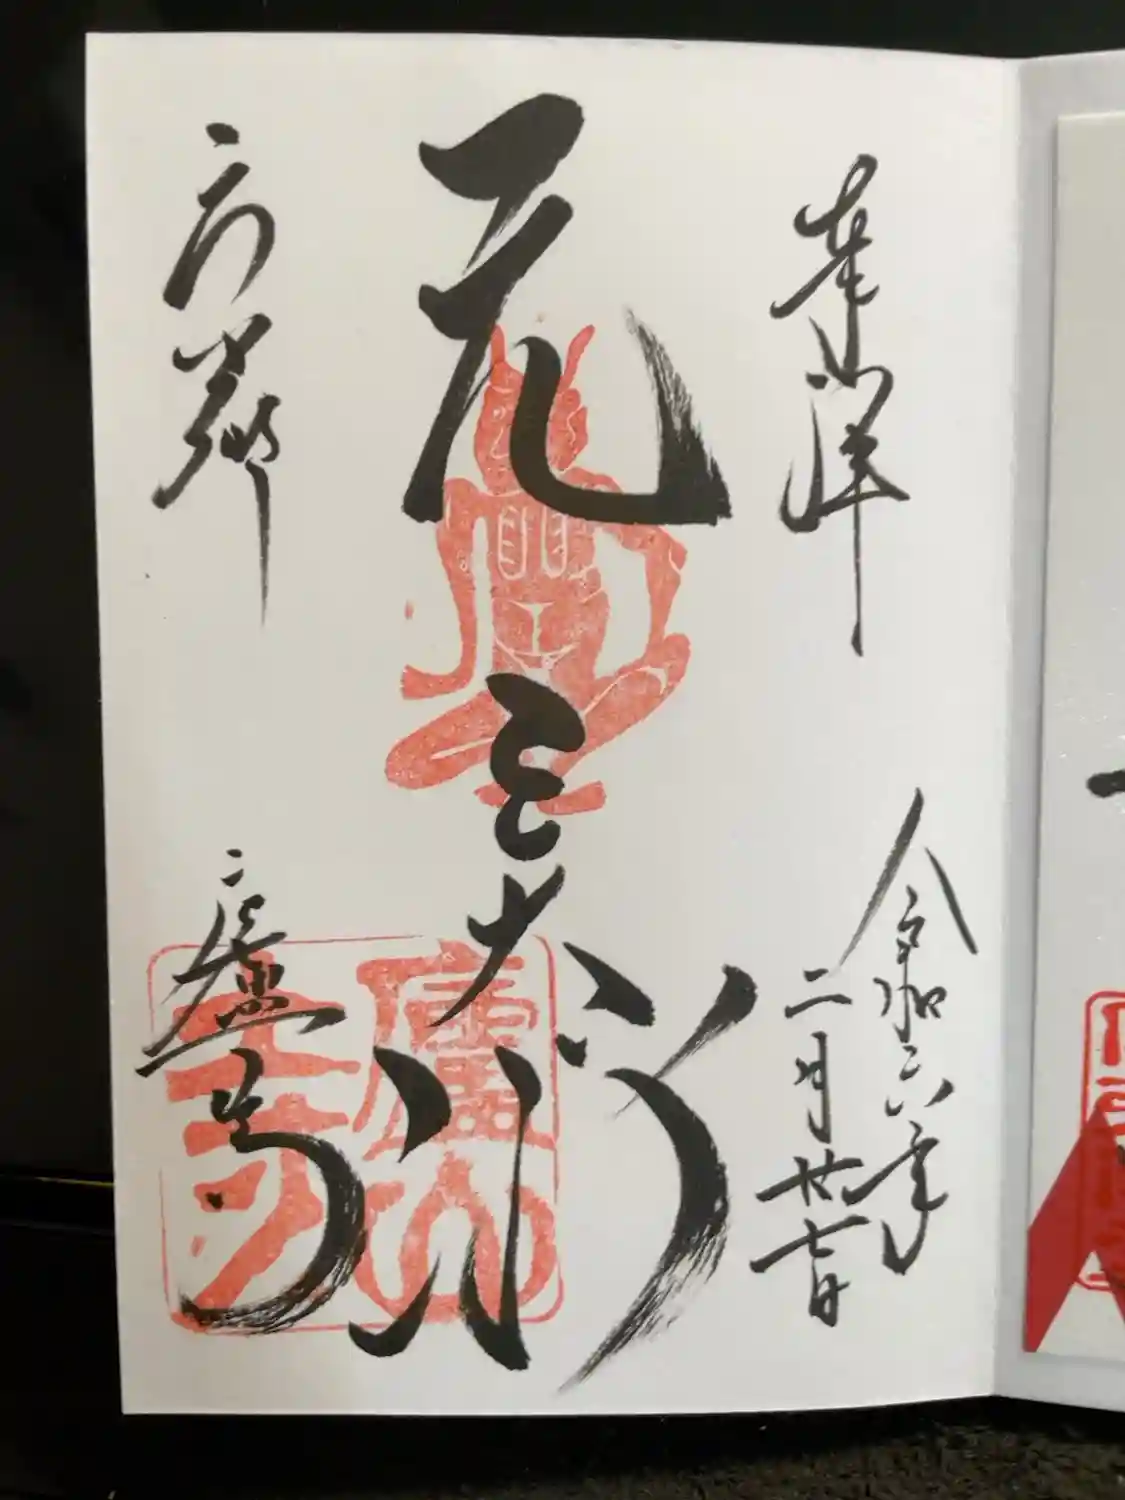 奉拝
令和六年
二月廿七日
元三大師
京都
廬山寺
廬山
寺